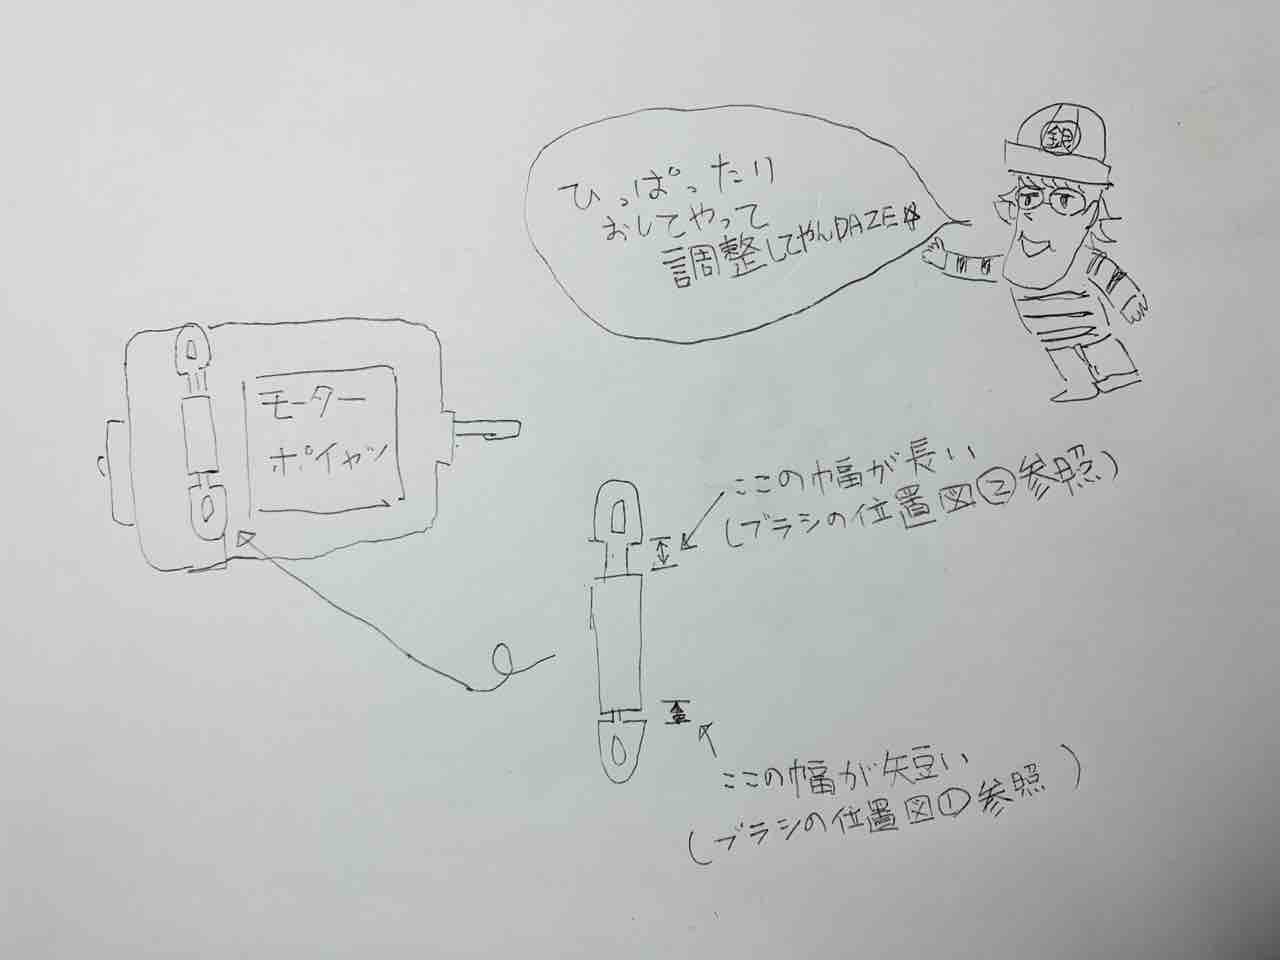 銀
ひっぱったり
おしてやって
調整してやんDAZE☆
モーター
ポイヤツ
ここの幅が長い
(ブラシの位置図②参照)
ここの幅が短い
(ブラシの位置図①参照)